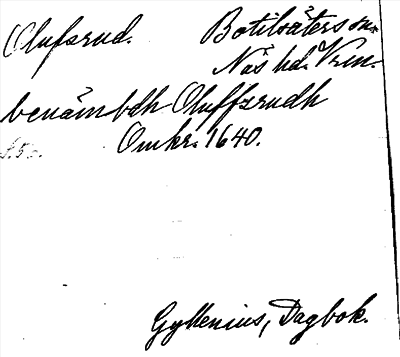 Olufsrud. Botilsäters sn.
Näs hd. Vrm.
benämbdh Oluffzrudh
s. 5.
Omkr. 1640.
Gyllenius, Dagbok.